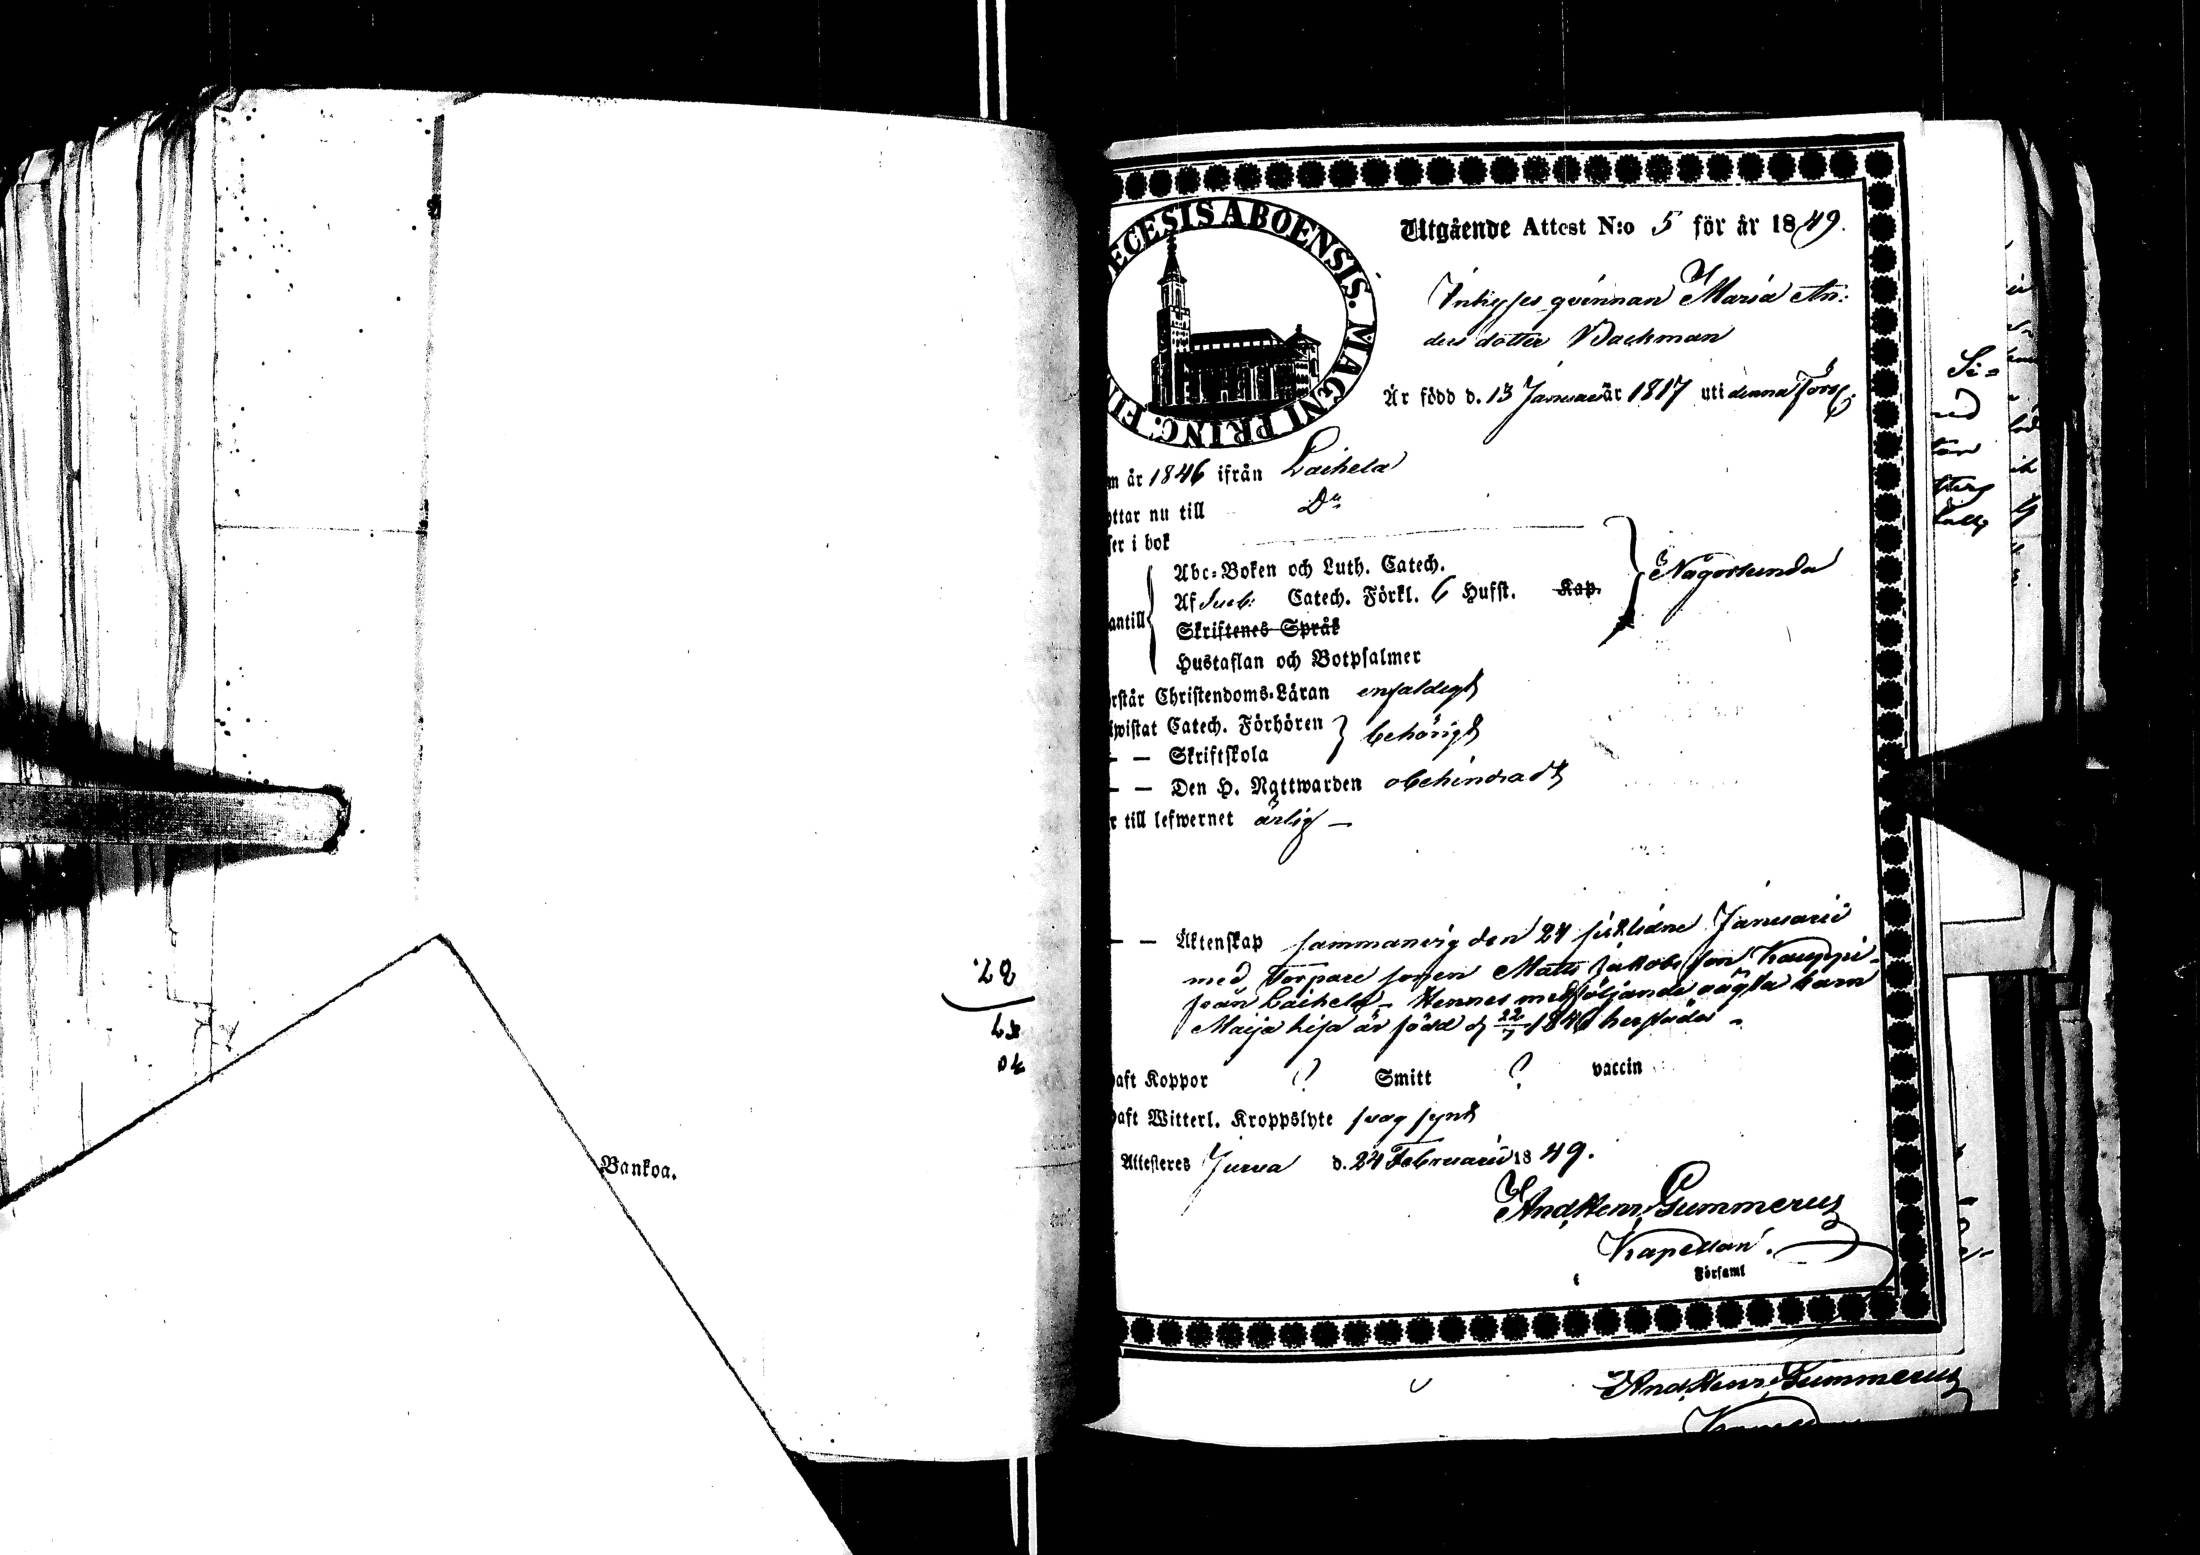 Bankoa.
27.
57
30
ECESIS ABOENSIS. MAGNI PRINC: FIN
Utgående Attest N:o 5 för år 1849.
Inhyses qvinnan Maria An:
ders dotter Backman
Är född d. 13 Januari år 1817 uti denna Förs:
m år 1846 ifrån Laihela
ottar nu till Do
ser i bok
Abc-Boken och Luth. Catech.
Af Sveb: Catech. Förkl. 6 Hufst. Kap. Någorlunda
antill
Skriftenes Språk
Hustaflan och Botpsalmer
rstår Christendoms-Läran enfaldigt
wistat Catech. Förhören behörigt
— — Skriftskola
— — Den H. Nattwarden obehindradt
r till lefwernet ärlig —
— — Äktenskap sammanvig den 24 sistledne Januarii
med Torpare sonen Matts Jakobs son Kauppi
från Laihela - Hennes medföljande oägta barn
Maija Lisa är född d 22/7 184 herstädes -
aft Koppor ? Smitt ? vaccin
aft Witterl. Kroppslyte svag synt
Attesteres Jurva d. 24 Februarii 1849.
And. Henr. Gummerus
Kapellan.
Församl
And. Henr. Gummerus